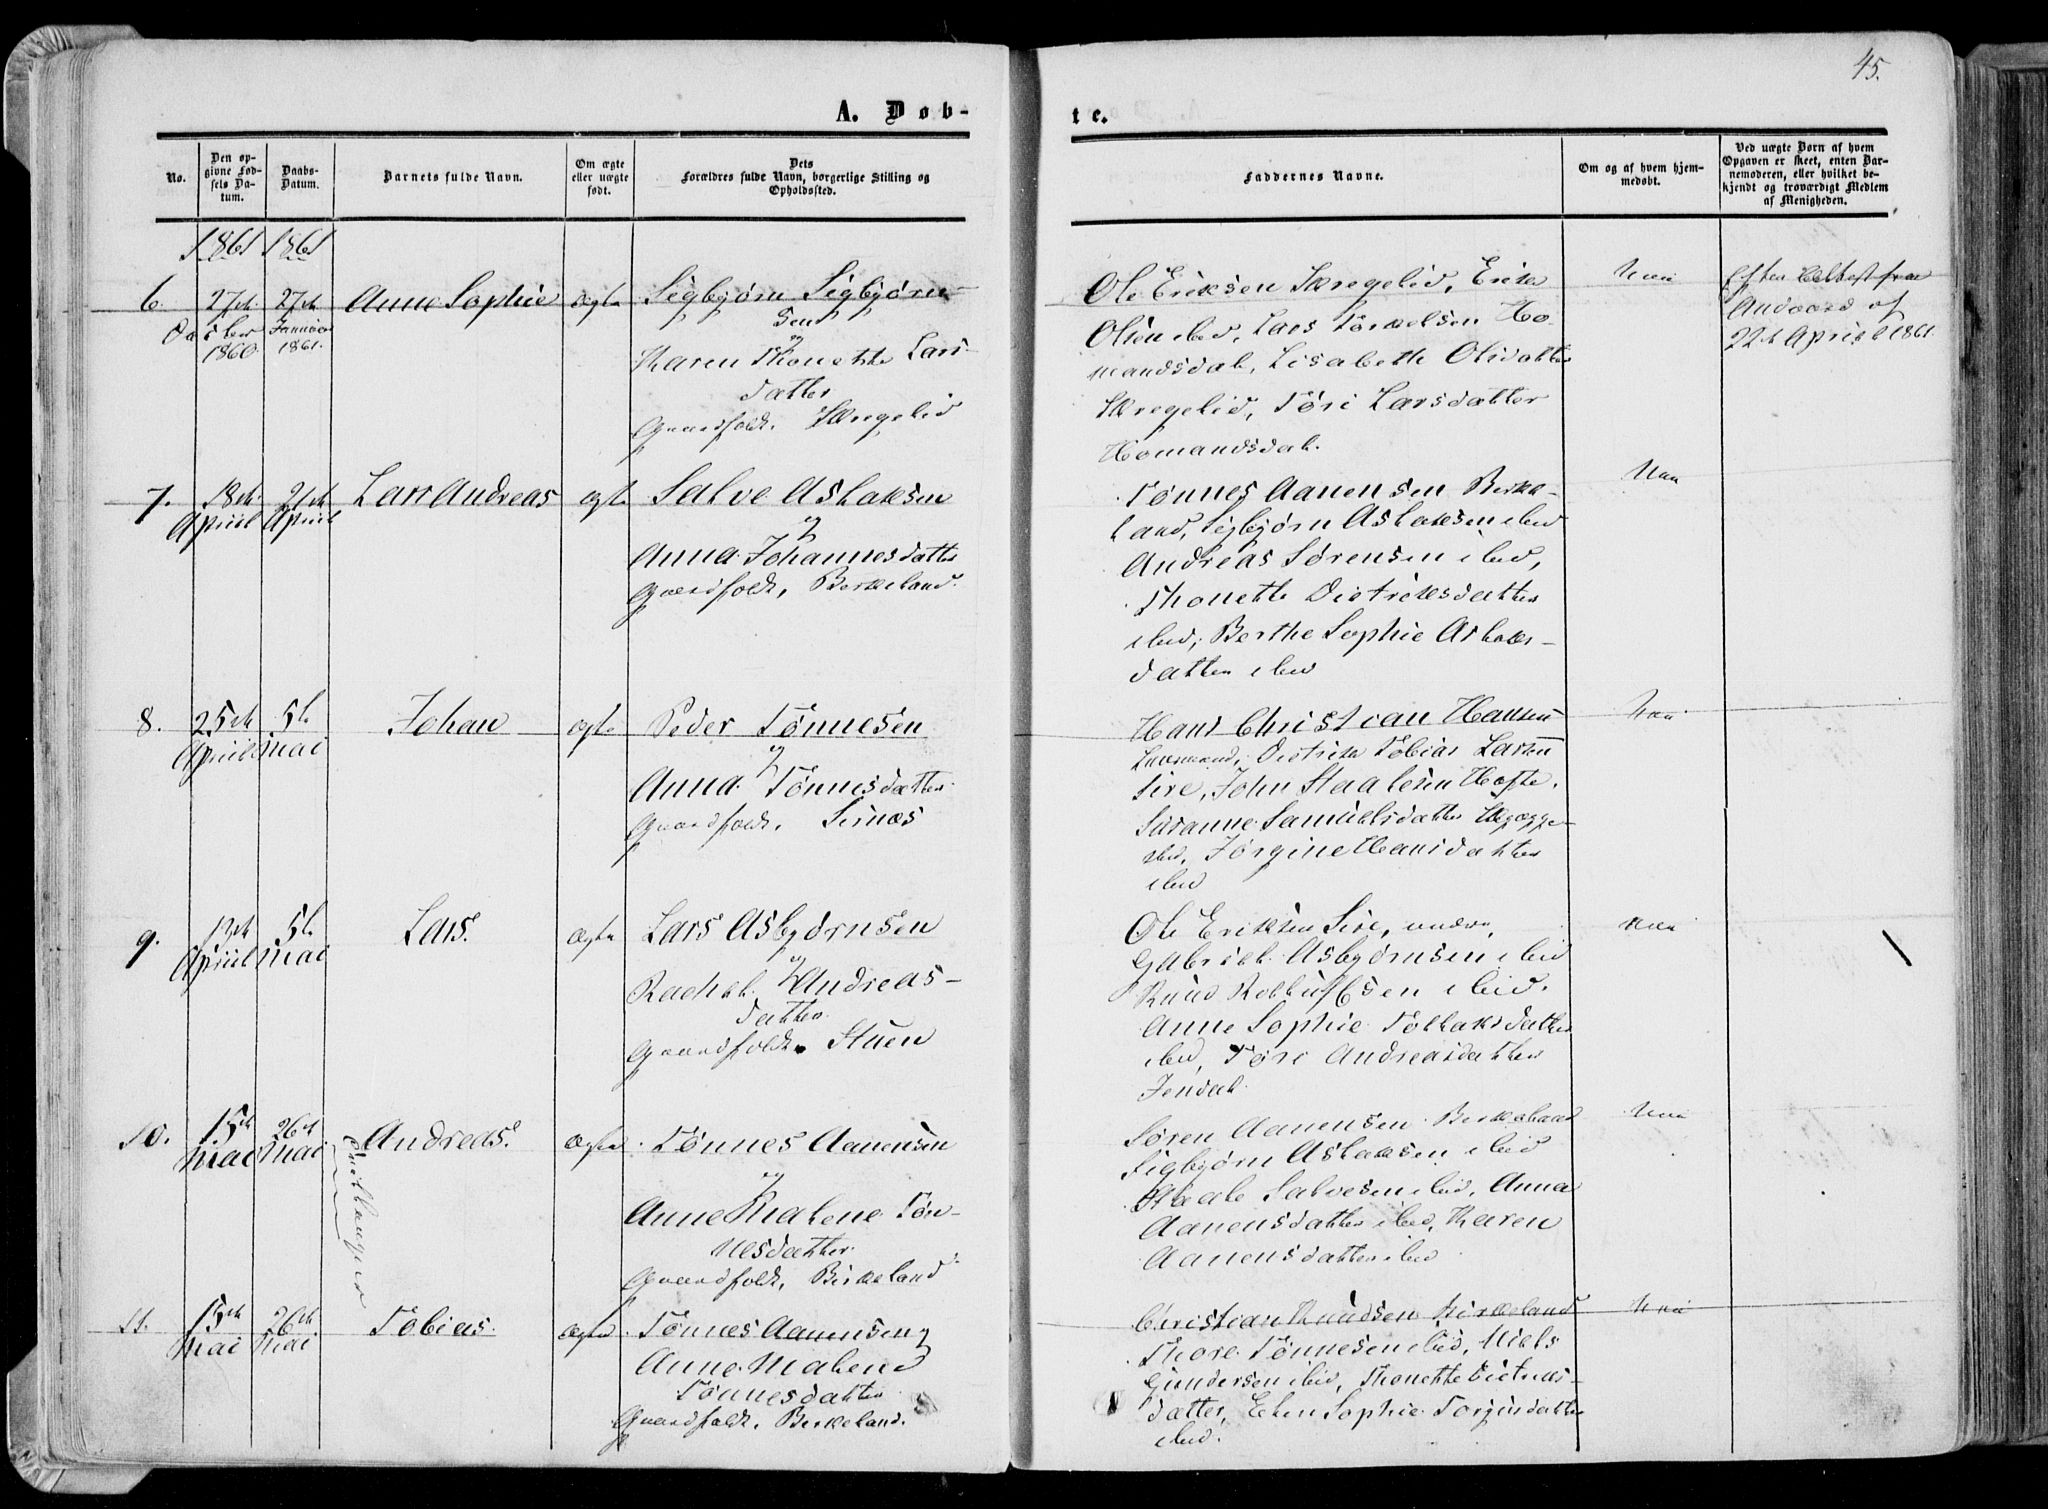 45.
A. Døb-
te.
No.
Den op-
givne Fød-
sels Da-
tum.
Daabs-
Datum.
Barnets fulde Navn.
Om ægte
eller uægte
født.
Dets
Forældres fulde Navn, borgerlige Stilling og
Opholdssted.
Faddernes Navne.
Om og af hvem hjem-
medøbt.
Ved uægte Børn af hvem
Opgaven er skeet, enten Bar-
nemoderen, eller hvilket be-
kjendt og troværdigt Medlem
af Menigheden.
1861 1861
6.
27de
1860.
27de
Januar
1861.
Anne Sophie
ægte
Sigbjørn Sigbjørn-
sen
og
Karen Thonette Lars-
datter
Gaardfolk, Skregelid
Ole Eriksen Skregelid, Erik
Olsen ibid, Lars Torkelsen Ho-
mandsdal, Lisabeth Olsdatter
Skregelid, Tøri Larsdatter
Homandsdal.
Nei
Efter Attest fra
22de April 1861.
7.
18de
April
21de
April
Lars Andreas
ægte
Salve Aslaksen
og
Anna Johannesdatter
Gaardfolk, Berkeland.
Tønnes Aanensen Berke-
land, Sigbjørn Aslaksen ibid
Andreas Sørensen ibid,
Thonette Dietriksdatter
ibid, Berthe Sophie Aslaks-
datter ibid
Nei
8.
25de
April
5te
Mai
Johan
ægte
Peder Tønnesen
og
Anna Tønnesdatter
Gaardfolk, Sirnæs
Hans Christian Hansen
Dietrik Tobias Larsen
Sire, John Staalesen Hofte,
Susanne Samuelsdatter
ibid, Jørgine Hansdatter
ibid
Nei
9.
April
5te
Mai
Lars.
ægte
Lars Asbjørnsen
og
Rachel Andreas-
datter
Gaardfolk, Stuen
Ole Eriksen Sire,
Gabriel Asbjørnsen ibid
Knud ibid.
Anne Sophie Tollaksdatter
ibid, Tøri Andreasdatter
Jendal.
Nei
10.
15de
Mai
26de
Mai
Andreas.
Tvillinger
ægte
Tønnes Aanensen
og
Anne Malene Tøn-
nesdatter
Gaardfolk, Birkeland
Søren Aanensen Berkeland
Sigbjørn Aslaksen ibid
Staale Salvesen ibid, Anna
Aanensdatter ibid, Karen
Aanensdatter ibid
Nei
11.
15de
Mai
26de
Mai
Tobias.
ægte
Tønnes Aanensen og
Anne Malene
Tønnesdatter
Gaardfolk, Berkeland.
Christian Knudsen Birkeland
Thore Tønnesen ibid, Niels
Gundersen ibid, Thonette Dietriks-
datter, Elen Sophie Torjusdatter
ibid.
Nei